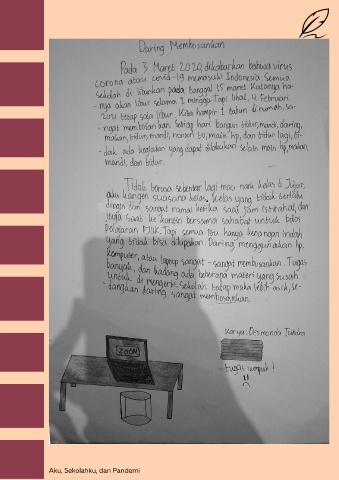 Daring Membosankan
Pada 3 Maret 2020, dikabarkan bahwa virus
corona atau covid-19 memasuki Indonesia. Semua
sekolah di liburkan pada tanggal 15 maret. Katanya ha-
- nya akan libur selama 2 minggu. Tapi lihat, 4 Februari
2021 tetap saja libur. Kita hampir 1 tahun di rumah, sa-
- ngat membosankan. Setiap hari bangun tidur, mandi, daring,
makan, tidur, mandi, nonton tv, main hp, dan tidur lagi, ti-
- dak ada kegiatan yang dapat dilakukan selain main hp, makan,
mandi, dan tidur.
Tidak terasa sebentar lagi mau naik kelas 6. Jujur,
aku kangen suasana kelas. Kelas yang tidak terlalu
dingin dan sangat ramai ketika saat jam istirahat, dan
juga saat ke kantin bersama sahabat untuk bolos
pelajaran PJOK. Tapi semua itu hanya kenangan indah
yang tidak bisa dilupakan. Daring menggunakan hp,
komputer, atau laptop sangat-sangat membosankan. Tugas
banyak, dan kadang ada beberapa materi yang susah
untuk di mengerti. Sekolah tatap muka lebih asik, se-
- dangkan daring sangat membosankan.
Karya: Desmonda Jundra
ZOOM
- tugas numpuk!
Aku, Sekolahku, dan Pandemi